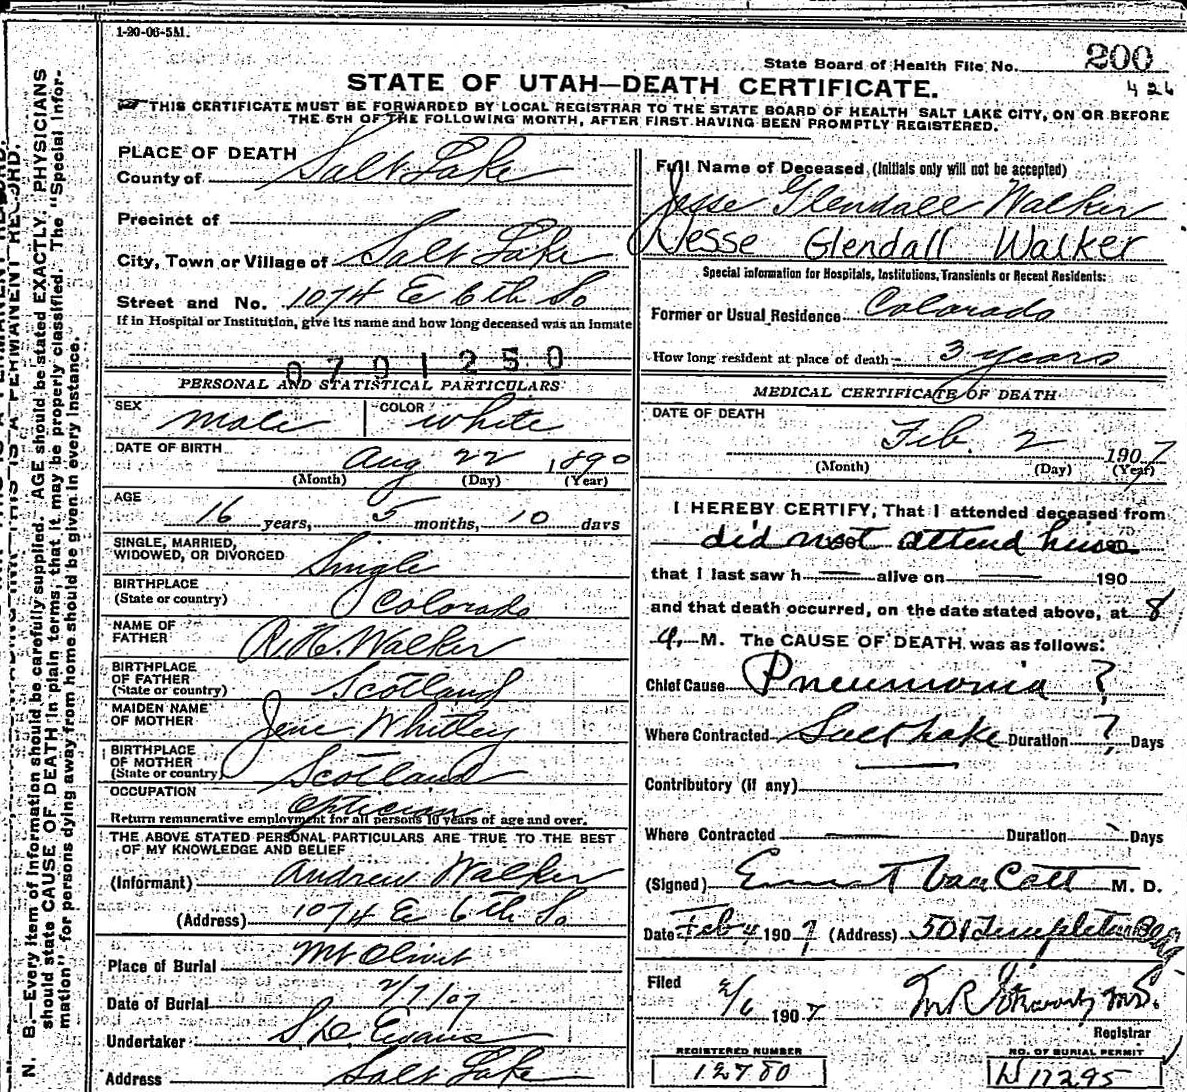 1-20-06-5M.
State Board of Health File No. 200
426
STATE OF UTAH—DEATH CERTIFICATE.
THIS CERTIFICATE MUST BE FORWARDED BY LOCAL REGISTRAR TO THE STATE BOARD OF HEALTH SALT LAKE CITY, ON OR BEFORE
THE 5TH OF THE FOLLOWING MONTH, AFTER FIRST HAVING BEEN PROMPTLY REGISTERED.
PLACE OF DEATH
County of Salt Lake
Precinct of
City, Town or Village of Salt Lake
Street and No. 1074 E 6th So
If in Hospital or Institution, give its name and how long deceased was an inmate
0701250
PERSONAL AND STATISTICAL PARTICULARS
SEX male COLOR white
DATE OF BIRTH Aug 22 1890
(Month) (Day) (Year)
AGE
16 years, 5 months, 10 days
SINGLE, MARRIED,
WIDOWED, OR DIVORCED Single
BIRTHPLACE
(State or country) Colorado
NAME OF
FATHER R. H. Walker
BIRTHPLACE
OF FATHER
(State or country) Scotland
MAIDEN NAME
OF MOTHER Jene Whitley
BIRTHPLACE
OF MOTHER
(State or country) Scotland
OCCUPATION Optician
Return remunerative employment for all persons 10 years of age and over.
THE ABOVE STATED PERSONAL PARTICULARS ARE TRUE TO THE BEST
OF MY KNOWLEDGE AND BELIEF
(Informant) Andrew Walker
(Address) 1074 E 6th So
Place of Burial Mt Olivit
Date of Burial 2/7/07
Undertaker S. D. Evans
Address Salt Lake
Full Name of Deceased (Initials only will not be accepted)
Jesse Glendall Walker
Jesse Glendall Walker
Special information for Hospitals, Institutions, Transients or Recent Residents:
Former or Usual Residence Colorado
How long resident at place of death — 3 years
MEDICAL CERTIFICATE OF DEATH
DATE OF DEATH
Feb. 2 1907
(Month) (Day) (Year)
I HEREBY CERTIFY, That I attended deceased from
did not attend him 190
that I last saw h — alive on — 190
and that death occurred, on the date stated above, at 8
a, M. The CAUSE OF DEATH was as follows:
Chief Cause Pneumonia ?
Where Contracted Salt Lake Duration ? Days
Contributory (if any)
Where Contracted — Duration Days
(Signed) Ernest Van Cott M. D.
Date Feb 4 1907 (Address) 501 Templeton Bldg
Filed 2/6 1907
Registrar
REGISTERED NUMBER
12780
NO. OF BURIAL PERMIT
N. B.—Every item of information should be carefully supplied. AGE should be stated EXACTLY. PHYSICIANS
should state CAUSE OF DEATH in plain terms, that it may be properly classified. The "Special Infor-
mation" for persons dying away from home should be given in every instance.